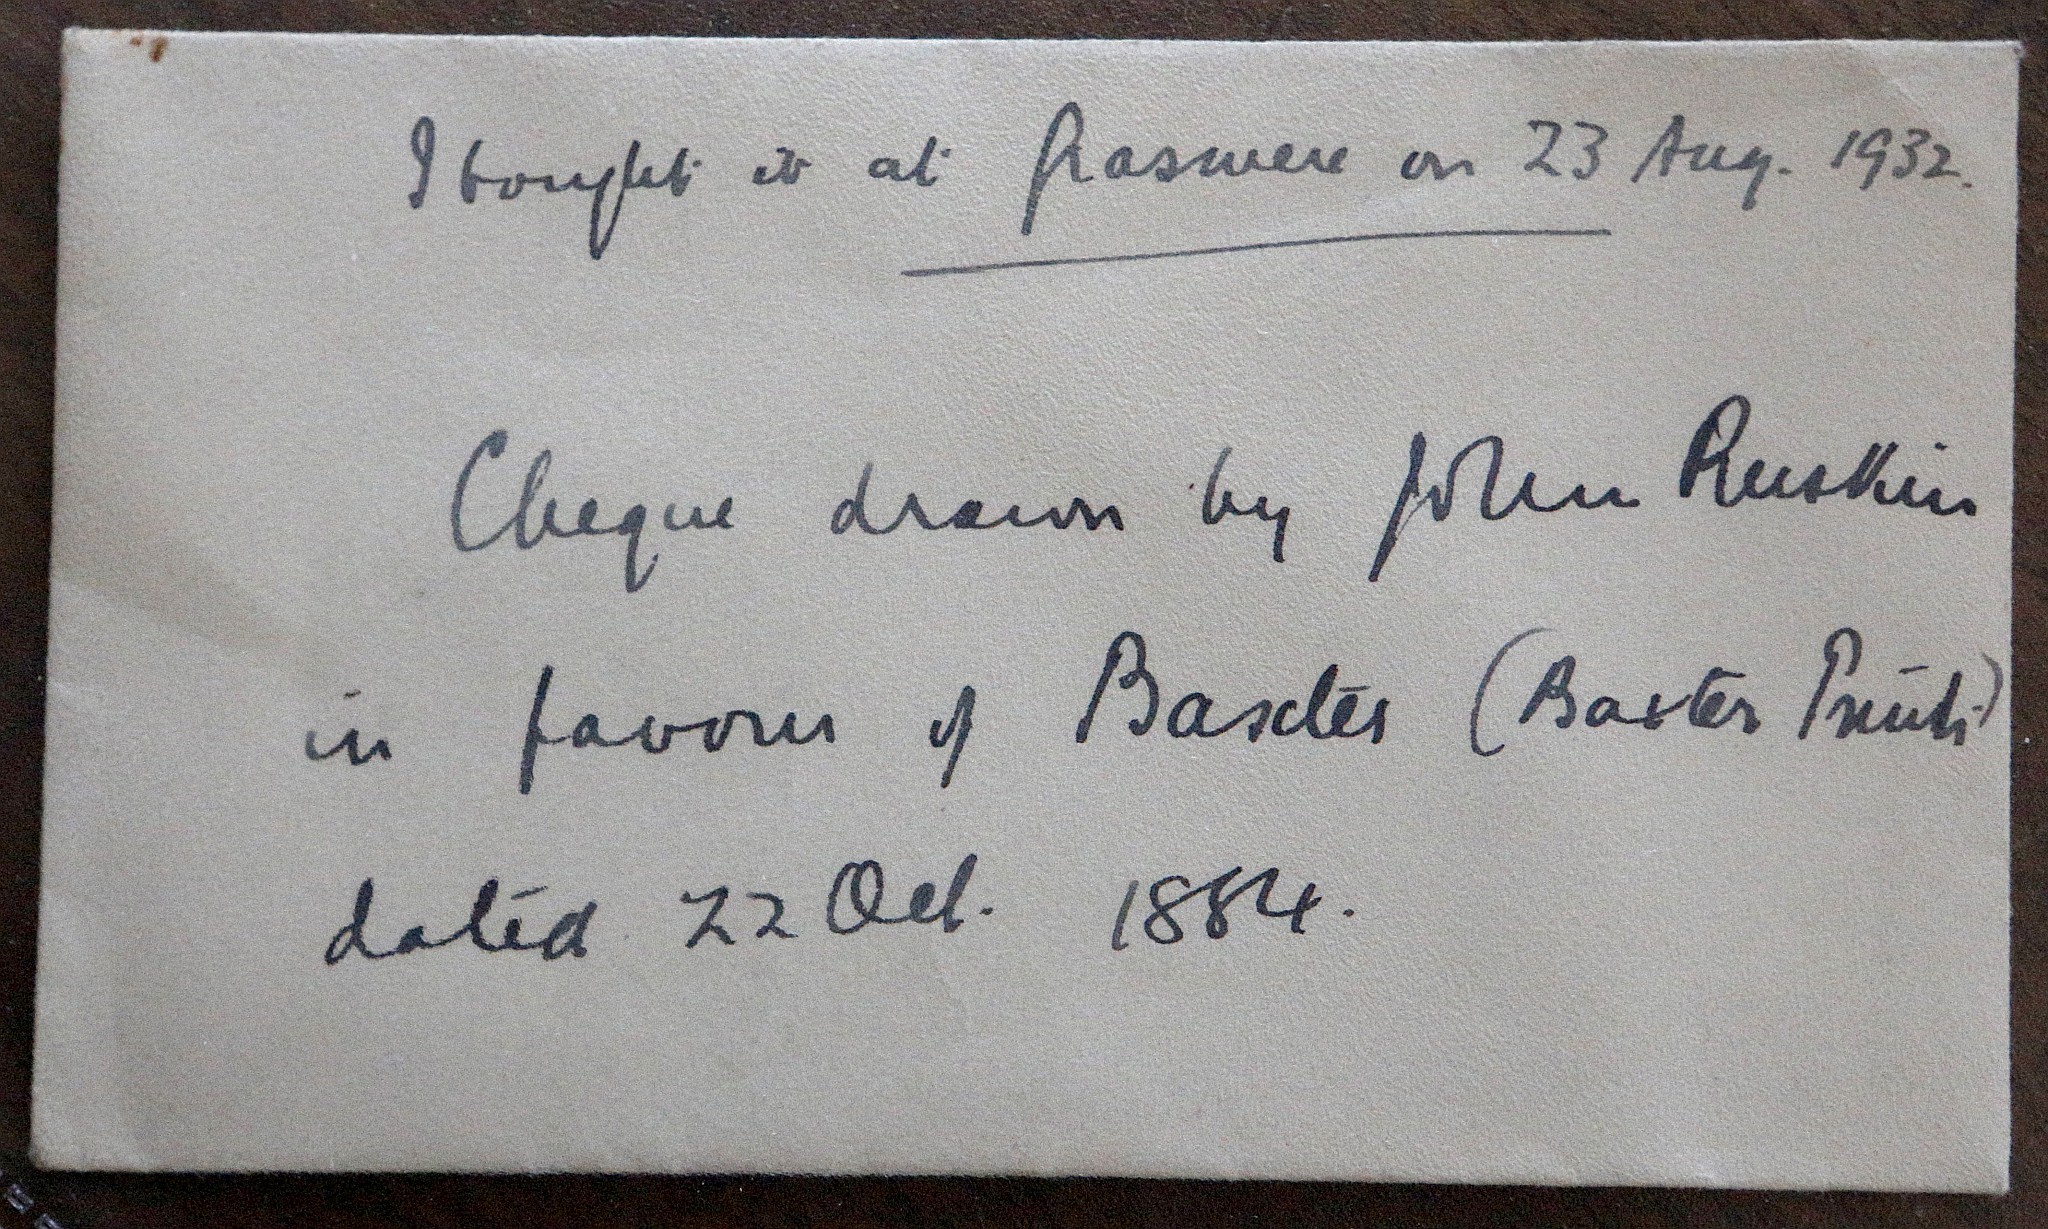 I bought it at Grasmere on 23 Aug. 1932.
Cheque drawn by John Ruskin
in favour of Baxter (Baxter Prints)
dated 22 Oct. 1884.